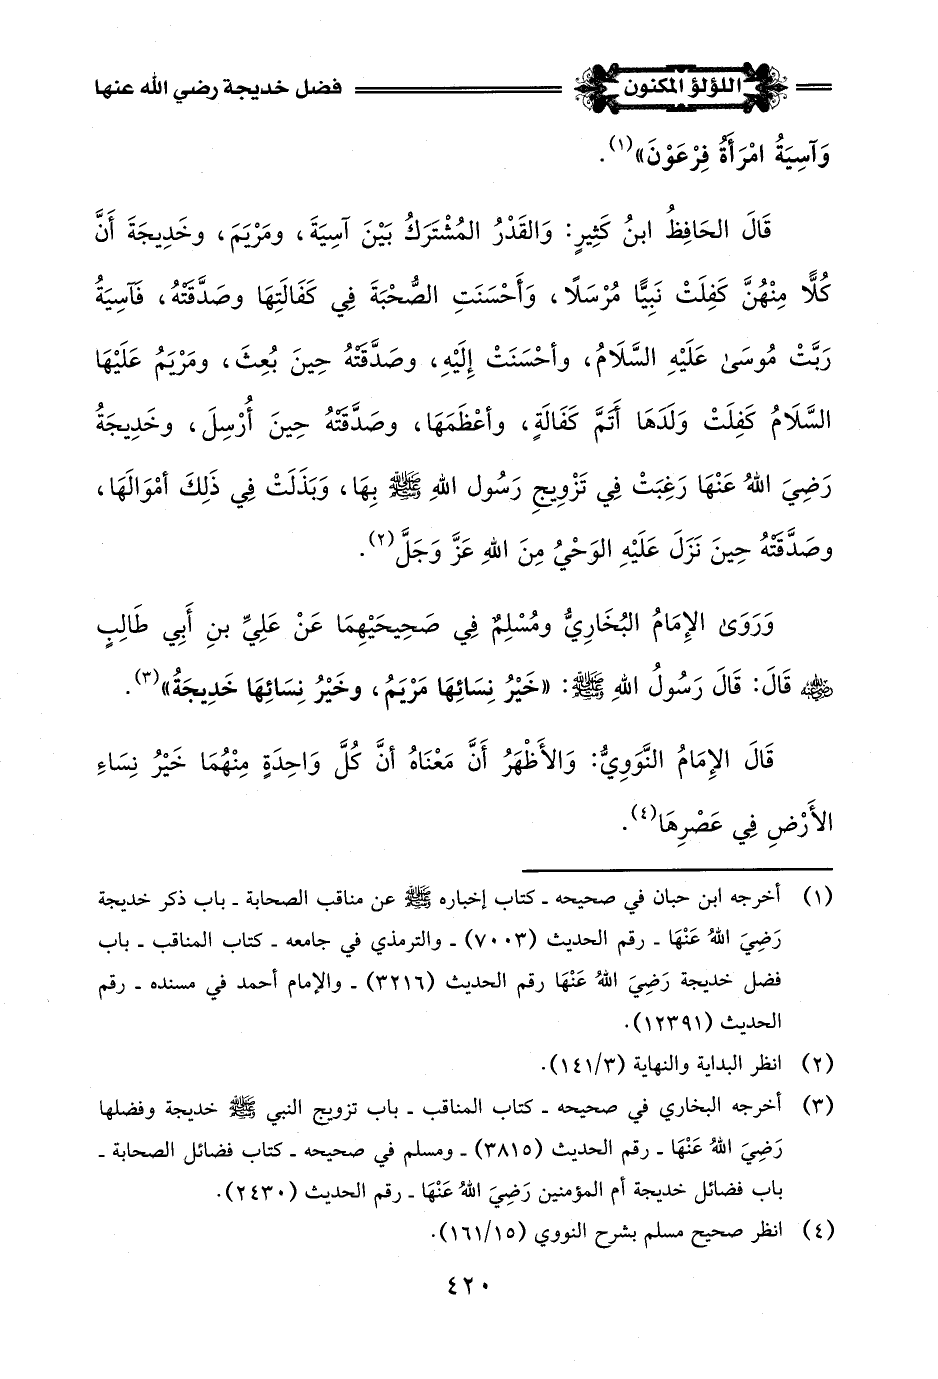 اللؤلؤ المكنون فضل خديجة رضي الله عنها
وَآسِيَةُ امْرَأَةُ فِرْعَوْنَ»(١).
قَالَ الحَافِظُ ابنُ كَثِيرٍ: وَالقَدْرُ المُشْتَرَكُ بَيْنَ آسِيَةَ، ومَرْيَمَ، وخَدِيجَةَ أَنَّ
كُلًّا مِنْهُنَّ كَفِلَتْ نَبِيًّا مُرْسَلًا، وَأَحْسَنَتِ الصُّحْبَةَ فِي كَفَالَتِهَا وصَدَّقَتْهُ، فَآسِيَةُ
رَبَّتْ مُوسَىٰ عَلَيْهِ السَّلَامُ، وأحْسَنَتْ إِلَيْهِ، وصَدَّقَتْهُ حِينَ بُعِثَ، ومَرْيَمُ عَلَيْهَا
السَّلَامُ كَفِلَتْ وَلَدَهَا أَتَمَّ كَفَالَةٍ، وأعْظَمَهَا، وصَدَّقَتْهُ حِينَ أُرْسِلَ، وخَدِيجَةُ
رَضِيَ اللهُ عَنْهَا رَغِبَتْ فِي تَزْوِيجِ رَسُولِ اللهِ ﷺ بِهَا، وَبَذَلَتْ فِي ذَلِكَ أمْوَالَهَا،
وصَدَّقَتْهُ حِينَ نَزَلَ عَلَيْهِ الوَحْيُ مِنَ اللهِ عَزَّ وَجَلَّ(٢).
وَرَوَىٰ الإِمَامُ البُخَارِيُّ ومُسْلِمٌ فِي صَحِيحَيْهِمَا عَنْ عَلِيِّ بنِ أَبِي طَالِبٍ
رضي الله عنه قَالَ: قَالَ رَسُولُ اللهِ ﷺ: «خَيْرُ نِسَائِهَا مَرْيَمُ، وخَيْرُ نِسَائِهَا خَدِيجَةُ»(٣).
قَالَ الإِمَامُ النَّوَوِيُّ: وَالأَظْهَرُ أَنَّ مَعْنَاهُ أنَّ كُلَّ وَاحِدَةٍ مِنْهُمَا خَيْرُ نِسَاءِ
الأَرْضِ فِي عَصْرِهَا(٤).
(١) أخرجه ابن حبان في صحيحه ـ كتاب إخباره ﷺ عن مناقب الصحابة ـ باب ذكر خديجة
رَضِيَ اللهُ عَنْهَا ـ رقم الحديث (٧٠٠٣) ـ والترمذي في جامعه ـ كتاب المناقب ـ باب
فضل خديجة رَضِيَ اللهُ عَنْهَا رقم الحديث (٣٢١٦) ـ والإمام أحمد في مسنده ـ رقم
الحديث (١٢٣٩١).
(٢) انظر البداية والنهاية (١٤١/٣).
(٣) أخرجه البخاري في صحيحه ـ كتاب المناقب ـ باب تزويج النبي ﷺ خديجة وفضلها
رَضِيَ اللهُ عَنْهَا ـ رقم الحديث (٣٨١٥) ـ ومسلم في صحيحه ـ كتاب فضائل الصحابة ـ
باب فضائل خديجة أم المؤمنين رَضِيَ اللهُ عَنْهَا ـ رقم الحديث (٢٤٣٠).
(٤) انظر صحيح مسلم بشرح النووي (١٦١/١٥).
٤٢٠